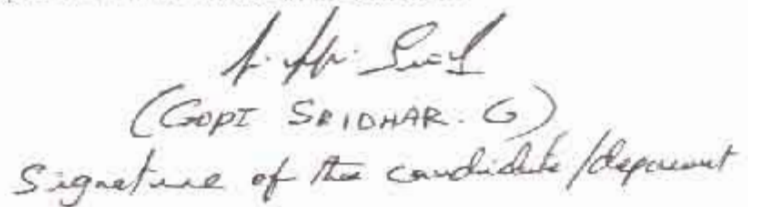 (GOPI SRIDHAR. G)
Signature of the candidate/deponent